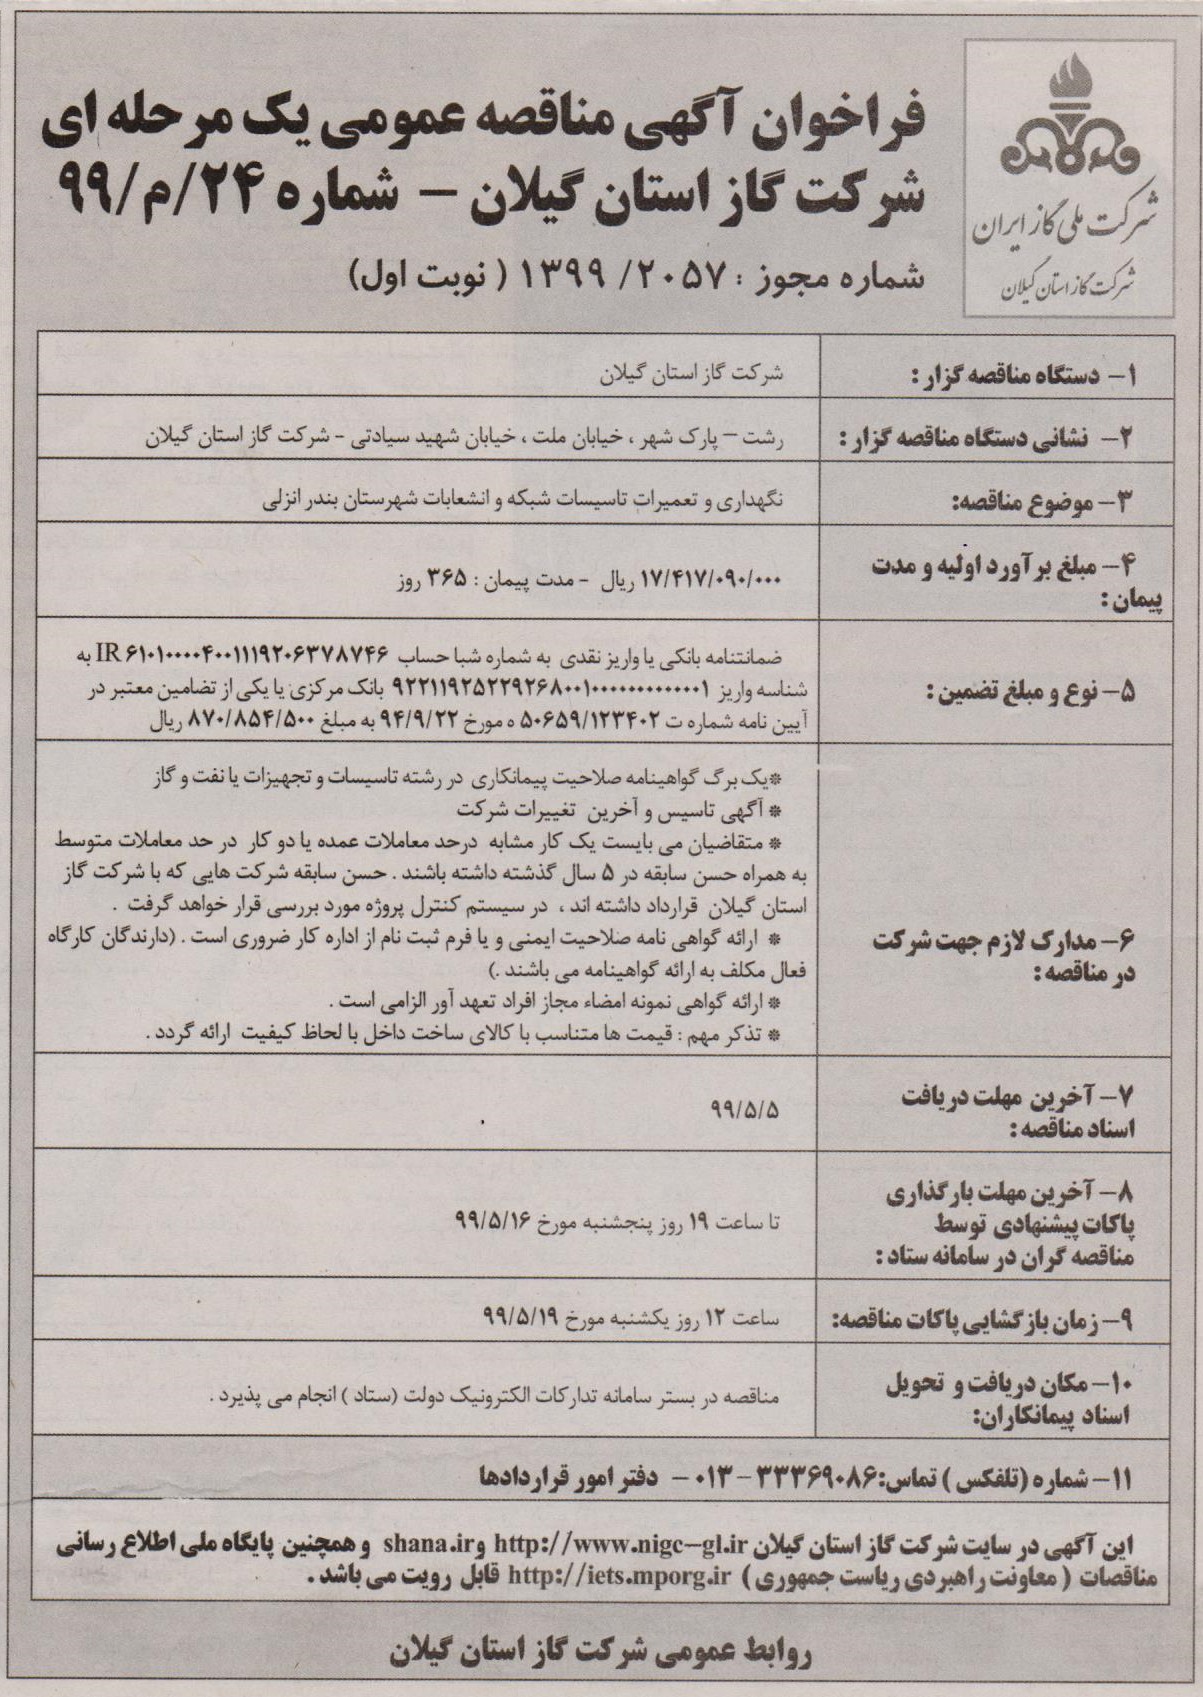 شرکت ملی گاز ایران
شرکت گاز استان گیلان
فراخوان آگهی مناقصه عمومی یک مرحله ای
شرکت گاز استان گیلان – شماره ۲۴/م/۹۹
شماره مجوز : ۱۳۹۹/۲۰۵۷ ( نوبت اول)
۱- دستگاه مناقصه گزار :
شرکت گاز استان گیلان
۲- نشانی دستگاه مناقصه گزار :
رشت – پارک شهر ، خیابان ملت ، خیابان شهید سیادتی - شرکت گاز استان گیلان
۳- موضوع مناقصه:
نگهداری و تعمیرات تاسیسات شبکه و انشعابات شهرستان بندر انزلی
۴- مبلغ برآورد اولیه و مدت
پیمان :
۱۷/۴۱۷/۰۹۰/۰۰۰ ریال - مدت پیمان : ۳۶۵ روز
۵- نوع و مبلغ تضمین :
ضمانتنامه بانکی یا واریز نقدی به شماره شبا حساب IR۶۱۰۱۰۰۰۰۴۰۰۱۱۱۹۲۰۶۳۷۸۷۴۶ به
شناسه واریز ۹۲۲۱۱۹۲۵۲۲۹۲۶۸۰۰۱۰۰۰۰۰۰۰۰۰۰۰۰۱ بانک مرکزی یا یکی از تضامین معتبر در
آیین نامه شماره ت ۵۰۶۵۹/۱۲۳۴۰۲ ه مورخ ۹۴/۹/۲۲ به مبلغ ۸۷۰/۸۵۴/۵۰۰ ریال
۶- مدارک لازم جهت شرکت
در مناقصه :
*یک برگ گواهینامه صلاحیت پیمانکاری در رشته تاسیسات و تجهیزات یا نفت و گاز
* آگهی تاسیس و آخرین تغییرات شرکت
* متقاضیان می بایست یک کار مشابه درحد معاملات عمده یا دو کار در حد معاملات متوسط
به همراه حسن سابقه در ۵ سال گذشته داشته باشند . حسن سابقه شرکت هایی که با شرکت گاز
استان گیلان قرارداد داشته اند ، در سیستم کنترل پروژه مورد بررسی قرار خواهد گرفت .
* ارائه گواهی نامه صلاحیت ایمنی و یا فرم ثبت نام از اداره کار ضروری است . (دارندگان کارگاه
فعال مکلف به ارائه گواهینامه می باشند .)
* ارائه گواهی نمونه امضاء مجاز افراد تعهد آور الزامی است .
* تذکر مهم : قیمت ها متناسب با کالای ساخت داخل با لحاظ کیفیت ارائه گردد .
۷- آخرین مهلت دریافت
اسناد مناقصه :
۹۹/۵/۵
۸- آخرین مهلت بارگذاری
پاکات پیشنهادی توسط
مناقصه گران در سامانه ستاد :
تا ساعت ۱۹ روز پنجشنبه مورخ ۹۹/۵/۱۶
۹- زمان بازگشایی پاکات مناقصه:
ساعت ۱۲ روز یکشنبه مورخ ۹۹/۵/۱۹
۱۰- مکان دریافت و تحویل
اسناد پیمانکاران:
مناقصه در بستر سامانه تدارکات الکترونیک دولت (ستاد ) انجام می پذیرد .
۱۱- شماره (تلفکس ) تماس:۳۳۳۶۹۰۸۶ - ۰۱۳ - دفتر امور قراردادها
این آگهی در سایت شرکت گاز استان گیلان http://www.nigc-gl.ir و shana.ir و همچنین پایگاه ملی اطلاع رسانی
مناقصات ( معاونت راهبردی ریاست جمهوری ) http://iets.mporg.ir قابل رویت می باشد .
روابط عمومی شرکت گاز استان گیلان